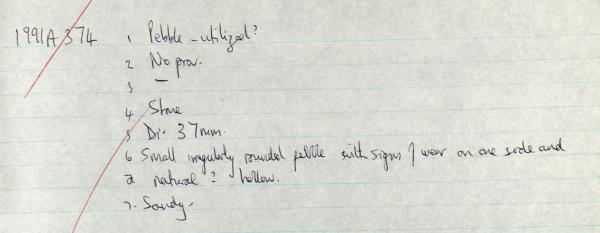 1991A 374 1 Pebble - utilized?
2 No prov.
3 —
4 Stone
5 Di. 37mm.
6 Small irregularly rounded pebble with signs of wear on one side and
a natural? hollow.
7. Sandy.